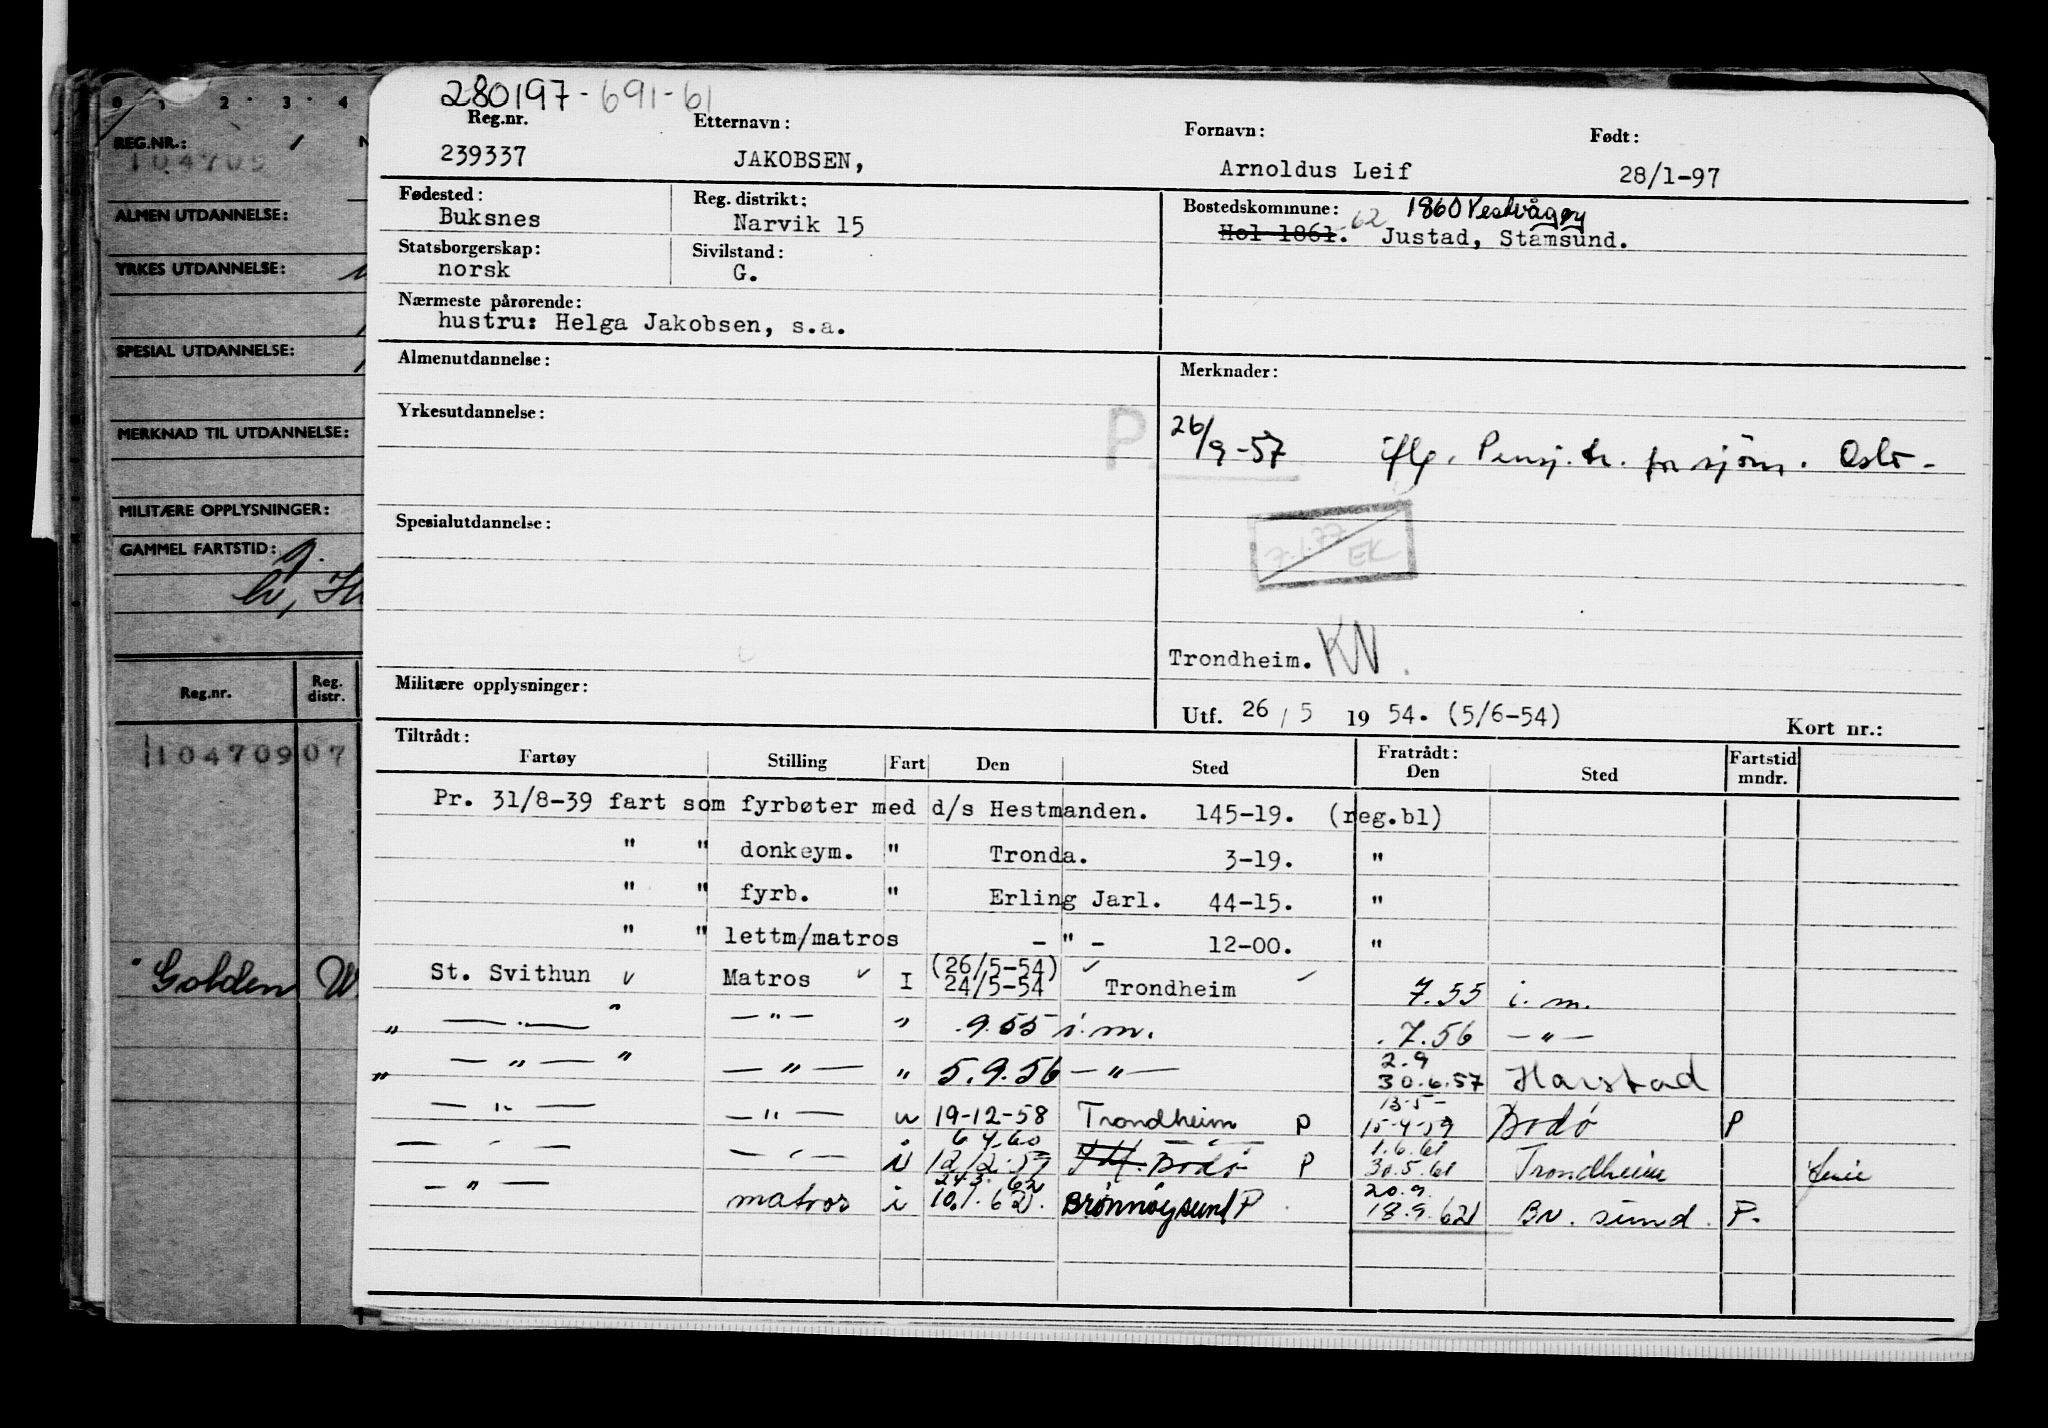 280197-691-61
Reg.nr. Etternavn: Fornavn: Født:
239337 JAKOBSEN, Arnoldus Leif 28/1-97
Fødested: Reg. distrikt: Bostedskommune: 1860 Vestvågøy
Buksnes Narvik 15 Hol 1861. 62 Justad, Stamsund.
Statsborgerskap: Sivilstand:
norsk G.
Nærmeste pårørende:
hustru: Helga Jakobsen, s.a.
Almenutdannelse: Merknader:
Yrkesutdannelse:
P 26/9-57 iflg. Pensj.tr. for sjøm. Oslo-
Spesialutdannelse:
7.1.77 EK
Trondheim. KN.
Militære opplysninger:
Utf. 26/5 1954. (5/6-54) Kort nr.:
Tiltrådt: Fratrådt:
Fartøy Stilling Fart Den Sted Den Sted Fartstid mndr.
Pr. 31/8-39 fart som fyrbøter med d/s Hestmanden. 145-19. (reg.bl)
" " donkeym. " Tronda. 3-19. "
" " fyrb. " Erling Jarl. 44-15. "
" " lettm/matros - " - 12-00. "
(26/5-54)
St. Svithun Matros I 24/5-54 Trondheim 7.55 i.m.
" — . — " — " — " .9.55 i.m. .7.56 — " —
2.9
" — " — " — " — " 5.9.56 — " — 30.6.57 Harstad
13.5-
— " — — " — u 19-12-58 Trondheim P 15-4-59 Bodø P
6 4.60 1.6.61
— " — — " — i 12/2.59 Bodø P 30.5.61 Trondheim
24.3.62 20.9.
— " — matros i 10.1.62. Brønnøysund P 18.9.62 Br. sund. P.
0 1 2 3 4
REG.NR.:
104709
ALMEN UTDANNELSE:
YRKES UTDANNELSE:
SPESIAL UTDANNELSE:
MERKNAD TIL UTDANNELSE:
MILITÆRE OPPLYSNINGER:
GAMMEL FARTSTID:
Reg.nr. Reg. distr.
11047090 7
Golden W